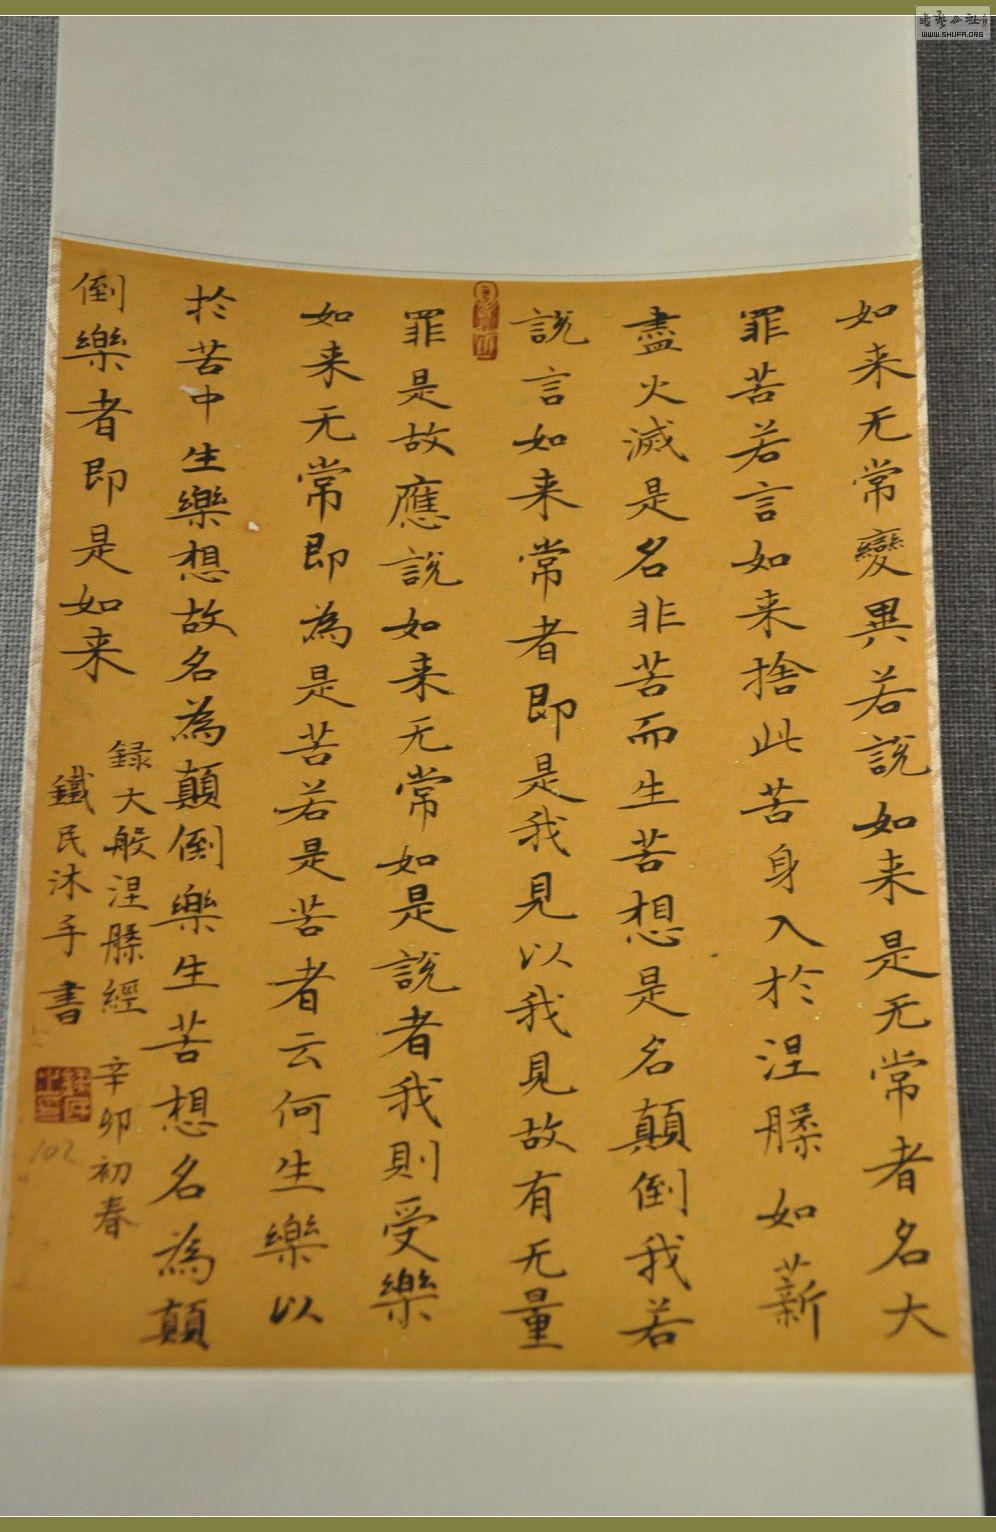 如来无常變異若說如来是无常者名大
罪苦若言如来捨此苦身入於涅膝如薪
盡火滅是名非苦而生苦想是名顛倒我若
說言如来常者即是我見以我見故有无量
罪是故應說如来无常如是說者我則受樂
如来无常即為是苦若是苦者云何生樂以
於苦中生樂想故名為顛倒樂生苦想名為顛
倒樂者即是如来
録大般涅膝經 辛卯初春
鐵民沐手書
102
WWW.SHUFA.ORG